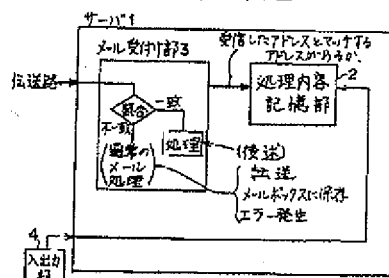 サーバ1
メール受付け部3
受信したアドレスとマッチする
アドレスがあるか、
伝送路
照合
一致
不一致
処理
通常の
メール
処理
処理内容
記憶部
2
(後述)
転送
メールボックスに保存
エラー発生
4
入出力
部